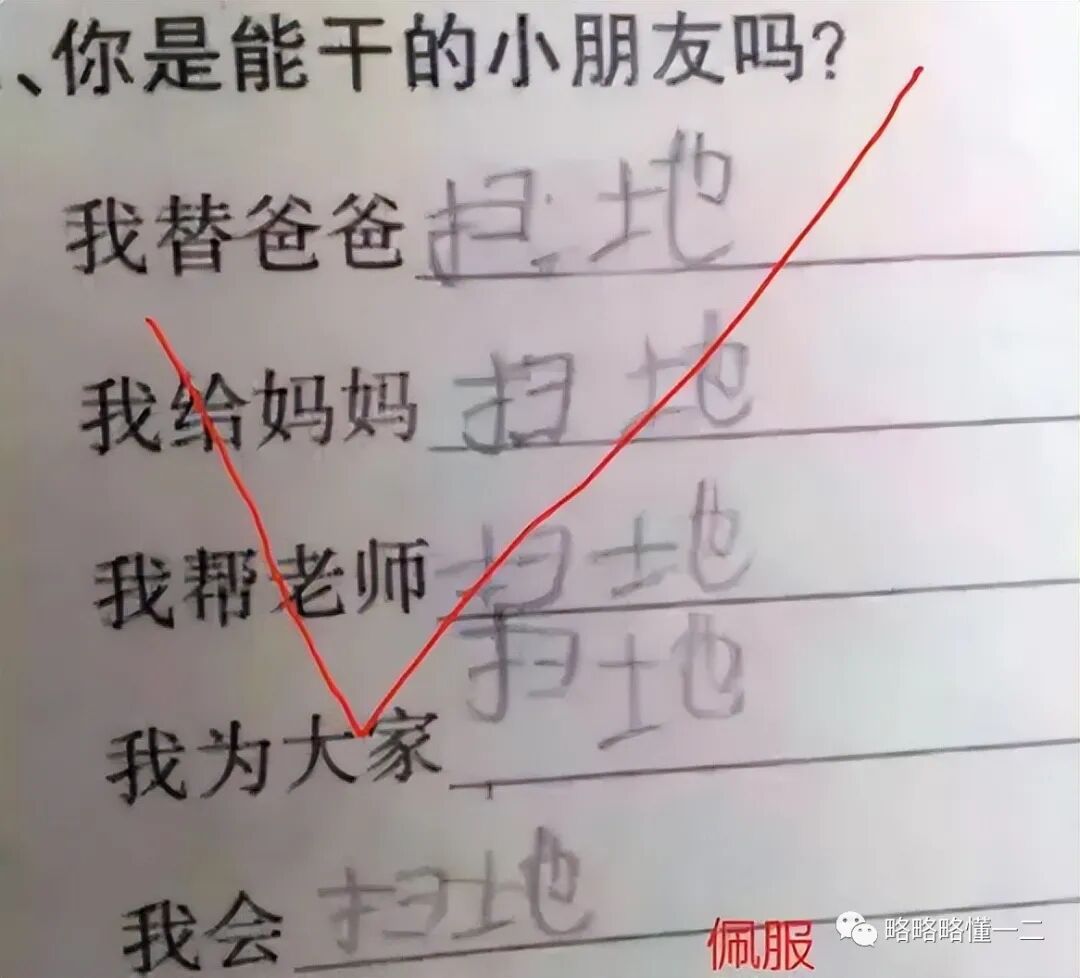 、你是能干的小朋友吗?
我替爸爸扫地
我给妈妈扫地
我帮老师扫地
我为大家扫地
我会扫地
佩服
略略略懂一二